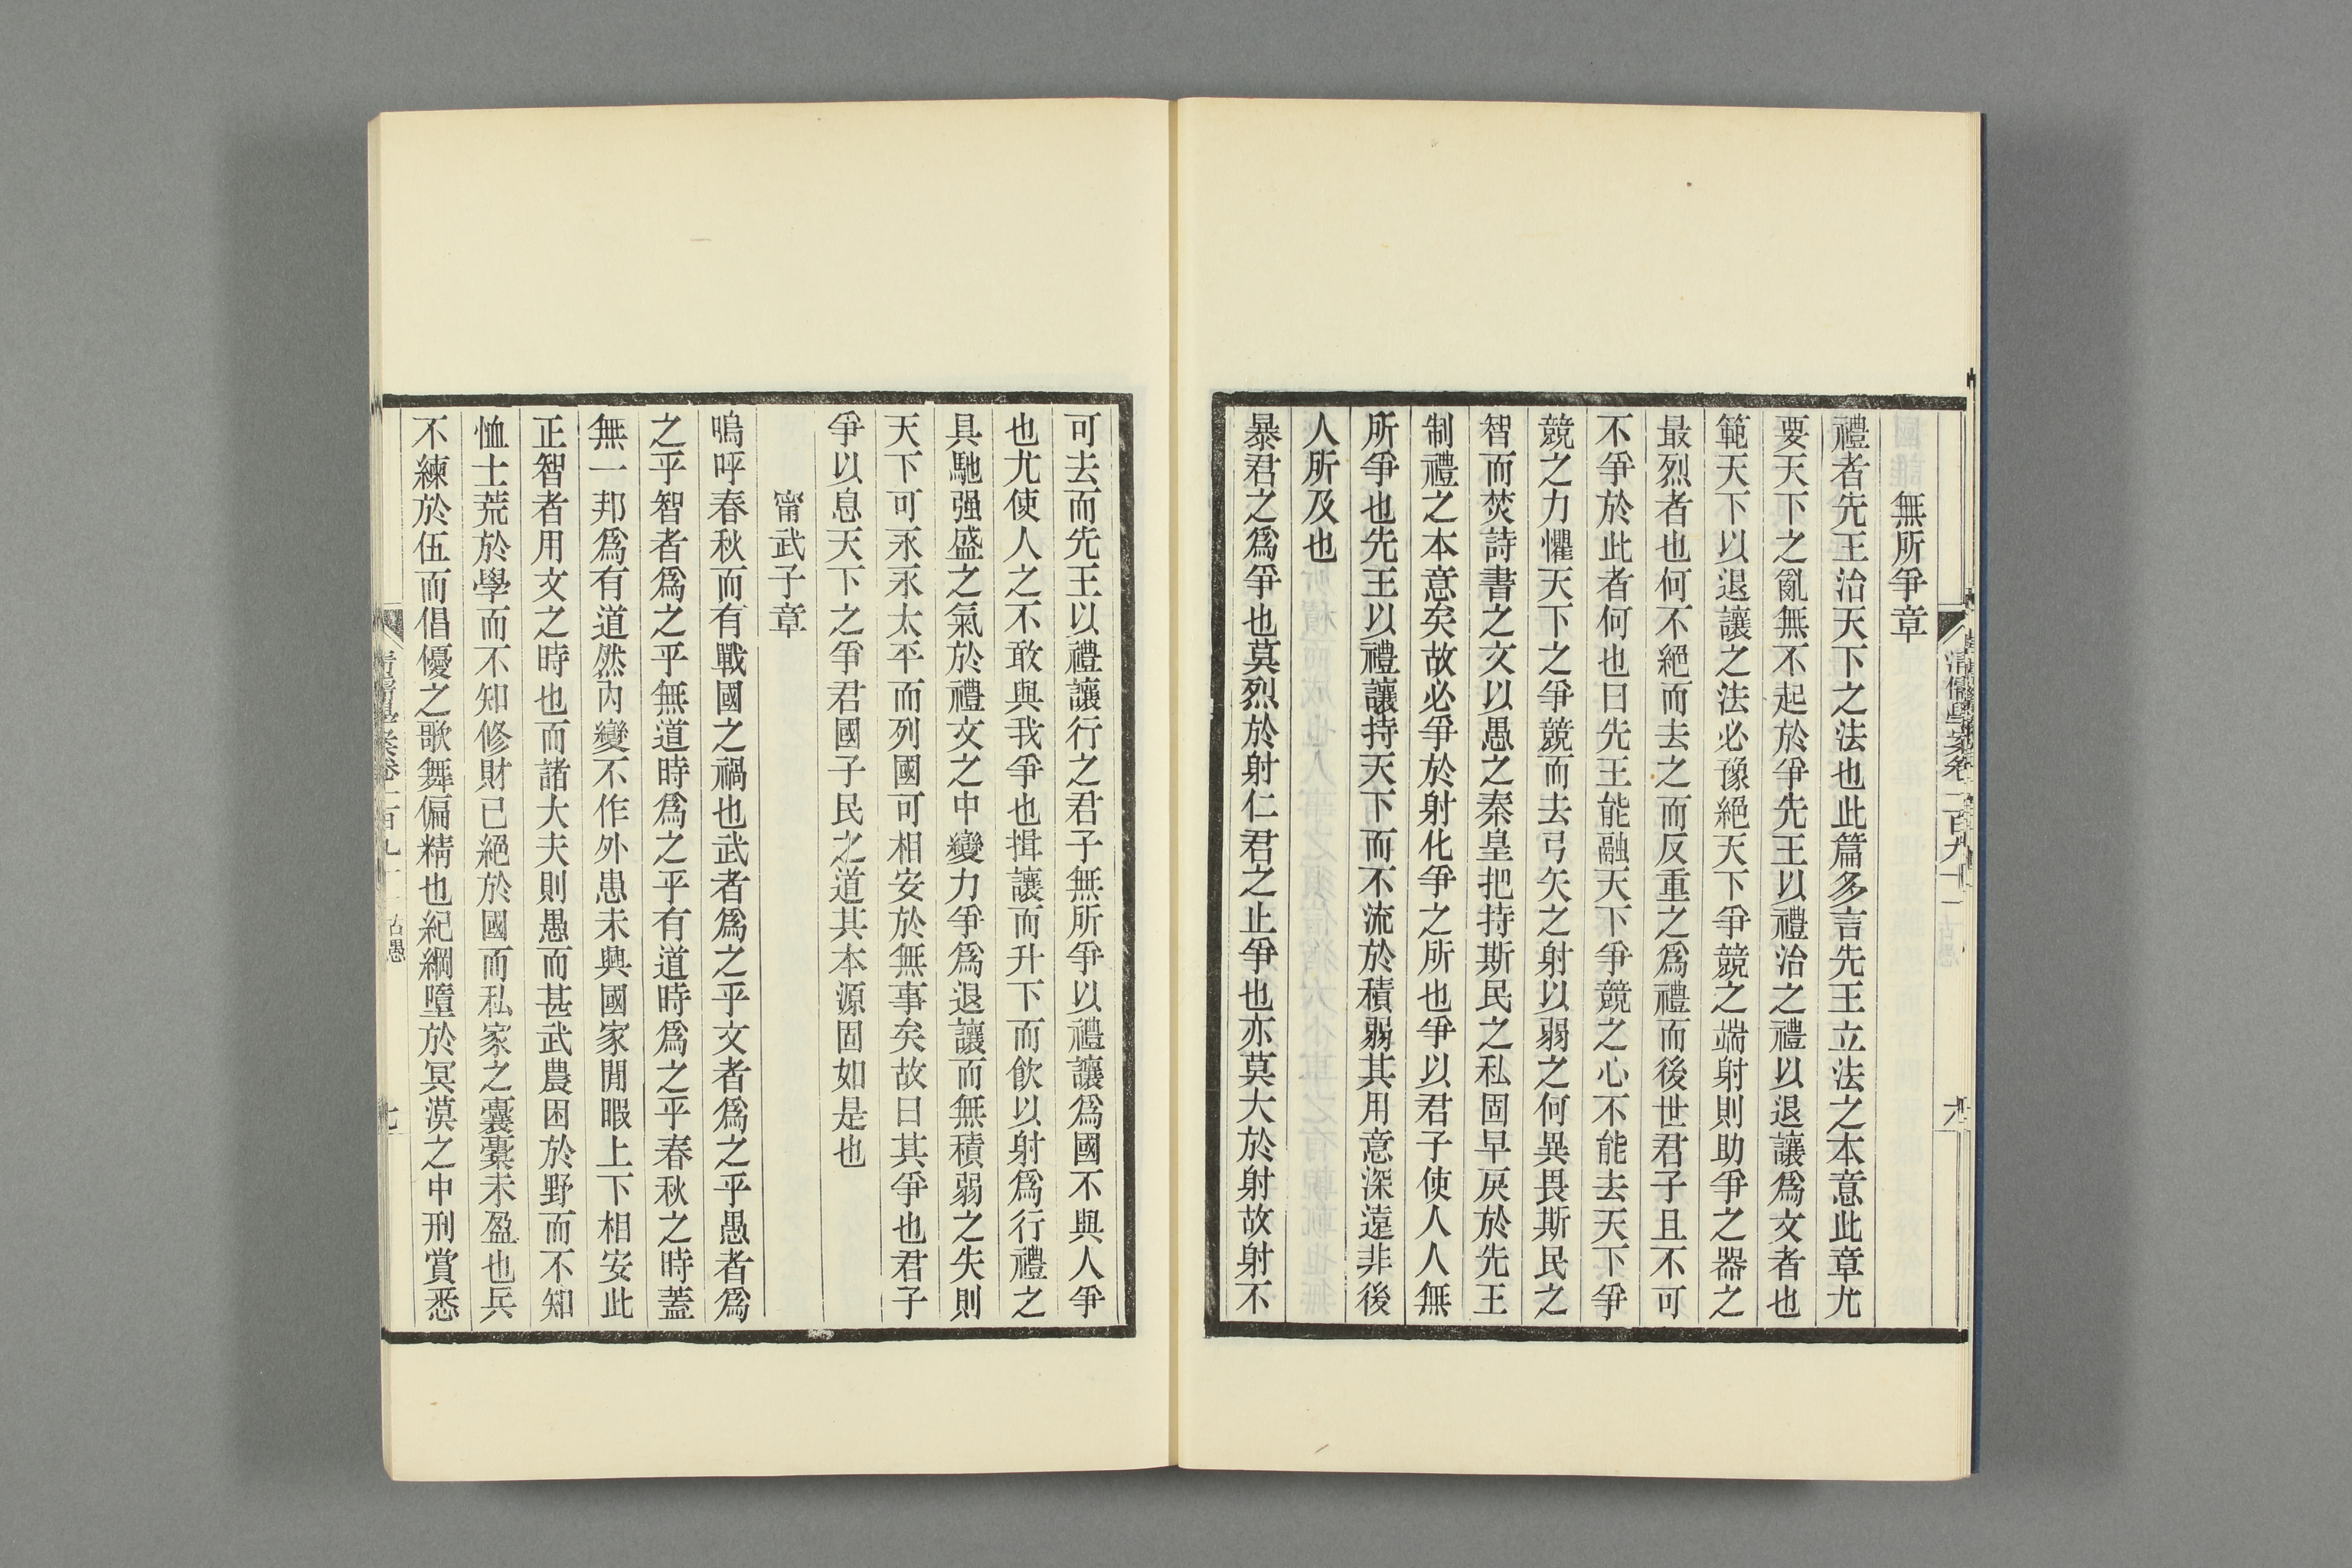 無所爭章
禮者先王治天下之法也此篇多言先王立法之本意此章尤
要天下之亂無不起於爭先王以禮治之禮以退讓爲文者也
範天下以退讓之法必豫絕天下爭競之端射則助爭之器之
最烈者也何不絕而去之而反重之爲禮而後世君子且不可
不爭於此者何也曰先王能融天下爭競之心不能去天下爭
競之力懼天下之爭競而去弓矢之射以弱之何異畏斯民之
智而焚詩書之文以愚之秦皇把持斯民之私固早戾於先王
制禮之本意矣故必爭於射化爭之所也爭以君子使人人無
所爭也先王以禮讓持天下而不流於積弱其用意深遠非後
人所及也
暴君之爲爭也莫烈於射仁君之止爭也亦莫大於射故射不
可去而先王以禮讓行之君子無所爭以禮讓爲國不與人爭
也尤使人之不敢與我爭也揖讓而升下而飲以射爲行禮之
具馳强盛之氣於禮文之中變力爭爲退讓而無積弱之失則
天下可永永太平而列國可相安於無事矣故曰其爭也君子
爭以息天下之爭君國子民之道其本源固如是也
甯武子章
嗚呼春秋而有戰國之禍也武者爲之乎文者爲之乎愚者爲
之乎智者爲之乎無道時爲之乎有道時爲之乎春秋之時蓋
無一邦爲有道然內變不作外患未興國家閒暇上下相安此
正智者用文之時也而諸大夫則愚而甚武農困於野而不知
恤士荒於學而不知修財已絕於國而私家之囊橐未盈也兵
不練於伍而倡優之歌舞偏精也紀綱墮於冥漠之中刑賞悉
清儒學案卷二百九十一